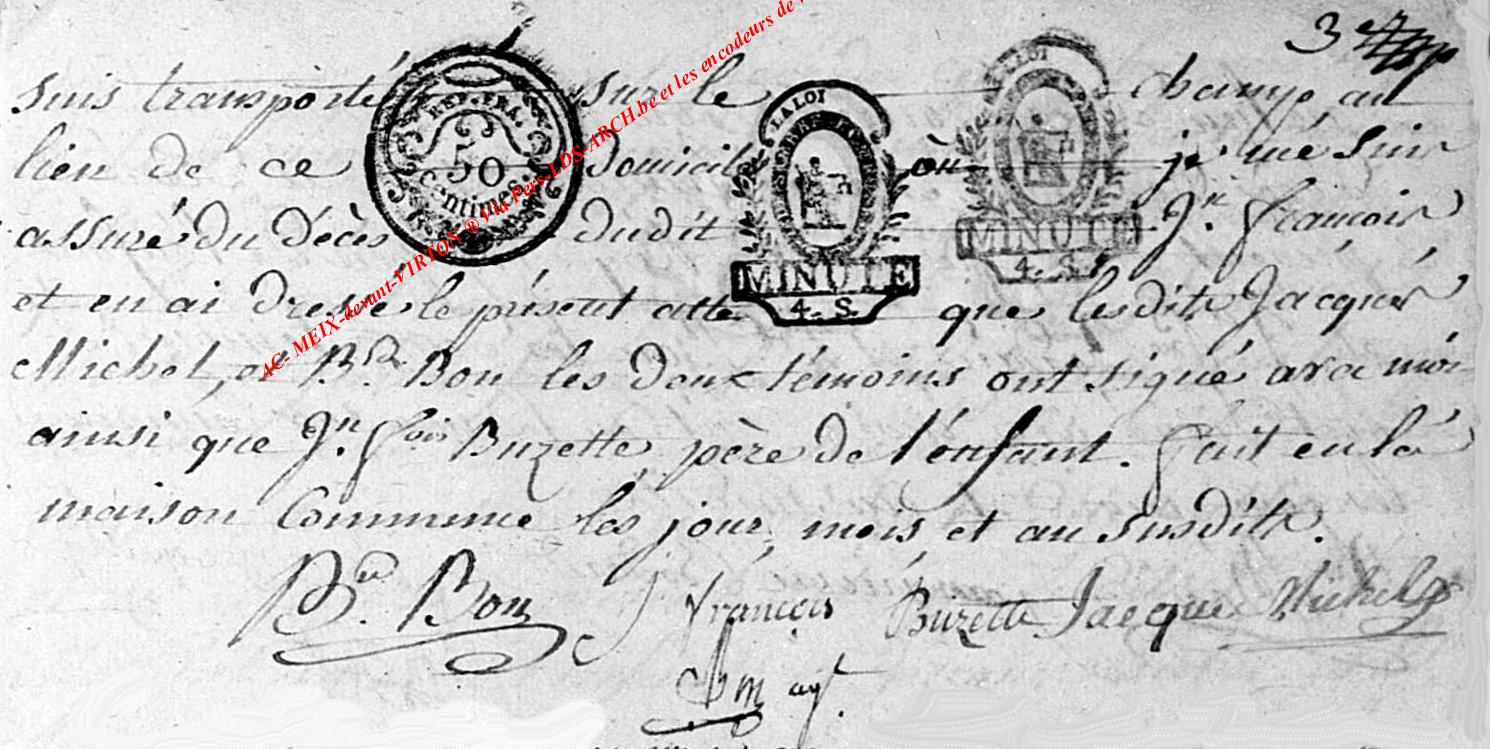 3
suis transporté sur le champ au
lieu de ce domicile où je me suis
assuré du décès dudit Jn. françois
et en ai dressé le présent acte que lesdits Jacques
Michel, et Bd. Bon les deux témoins ont signé avec moi
ainsi que Jn. fois Buzette, père de l'enfant. fait en la
maison Commune les jour, mois et an susdits.
Bd. Bon J françois Buzette Jacque Michel
agt.
REP. FRA.
50
Centimes.
LA LOI
MINUTE
4. S.
LA LOI
MINUTE
4. S.
AC- MEIX-devant-VIRTON ® Via Pers-LDS-ARCH.be et les encodeurs de